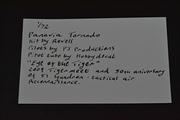 1/72
Panavia Tornado
Kit by Revell
Pilots by PJ Productions
Pitot tube by Hobbydecal
"Eye of the Tiger"
2009 Tigermeet and 50th aniversary
of 51 squadron - tactical air
Reconnaissance.